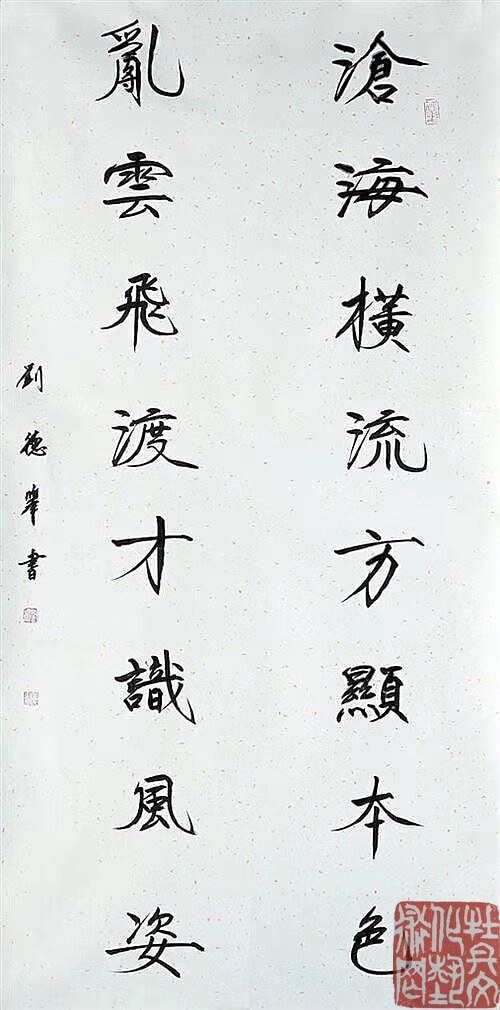 滄海橫流方顯本色
亂雲飛渡才識風姿
劉德舉書